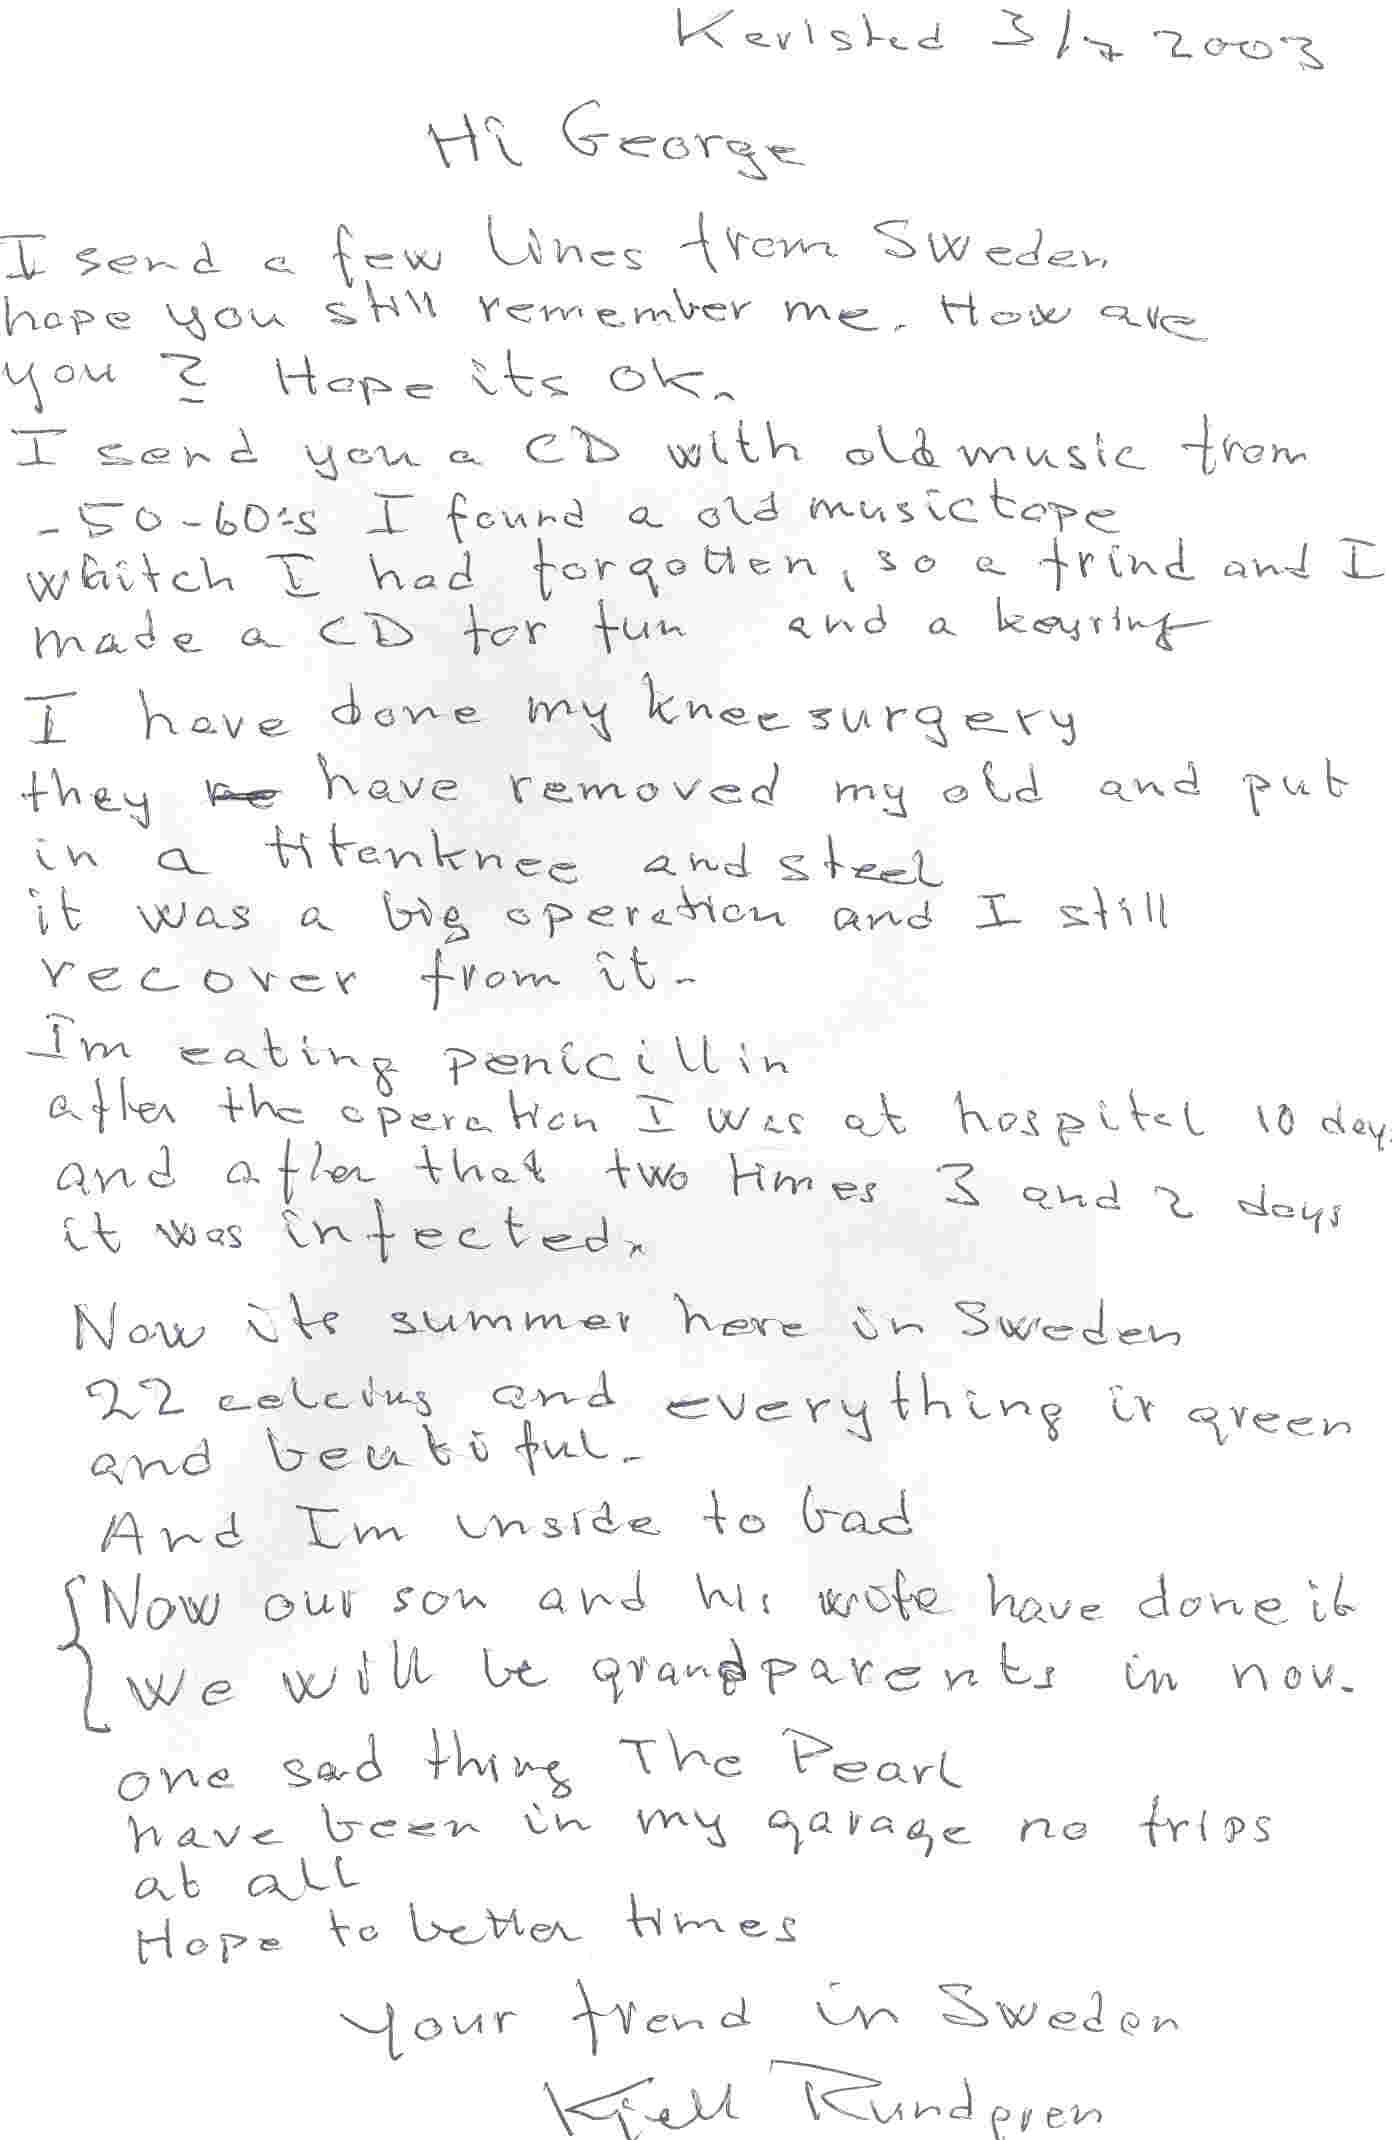 Karlstad 3/7 2003
Hi George
I send a few lines from Sweden
hope you still remember me. How are
you? Hope its ok.
I send you a CD with old music from
-50-60:s I found a old musictape
whitch I had forgotten, so a frind and I
made a CD for fun and a keyring
I have done my knee surgery
they have removed my old and put
in a titanknee and steel
it was a big operation and I still
recover from it.
Im eating penicillin
after the operation I was at hospital 10 days
and after that two times 3 and 2 days
it was infected.
Now its summer here in Sweden
22 celcius and everything is green
and beutiful.
And Im inside to bad
Now our son and his wife have done it
We will be grandparents in nov.
one sad thing The Pearl
have been in my garage no trips
at all
Hope to better times
Your frend in Sweden
Kjell Rundgren